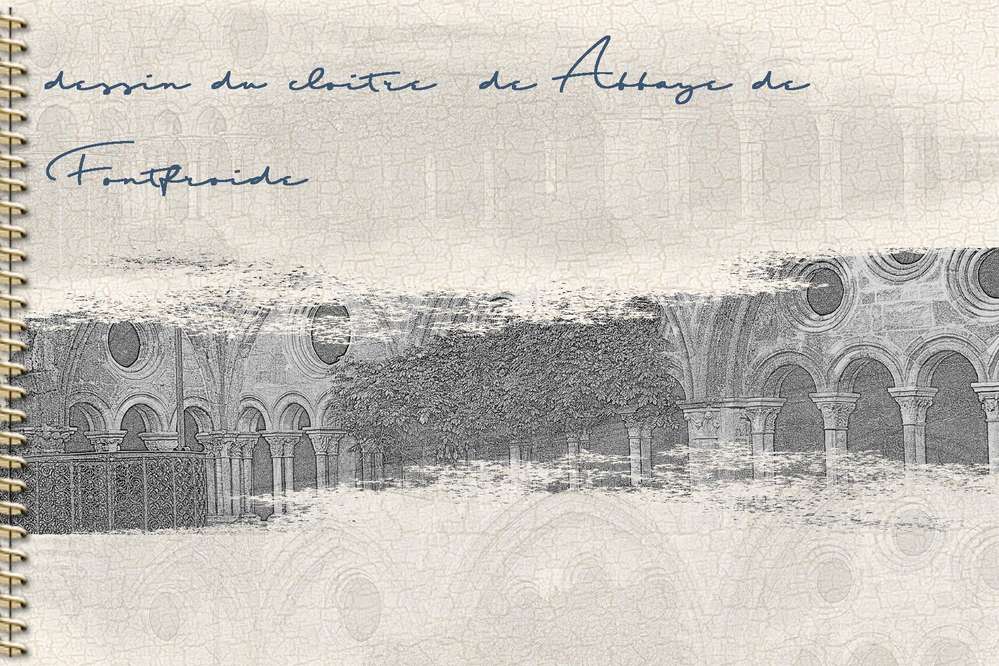 dessin du cloitre de Abbaye de
Fontfroide